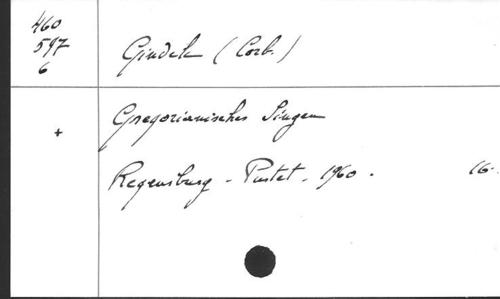 460
597
6
Gindele (Corb.)
+
Gregorianisches Singen
Regensburg - Pustet - 1960. 16.